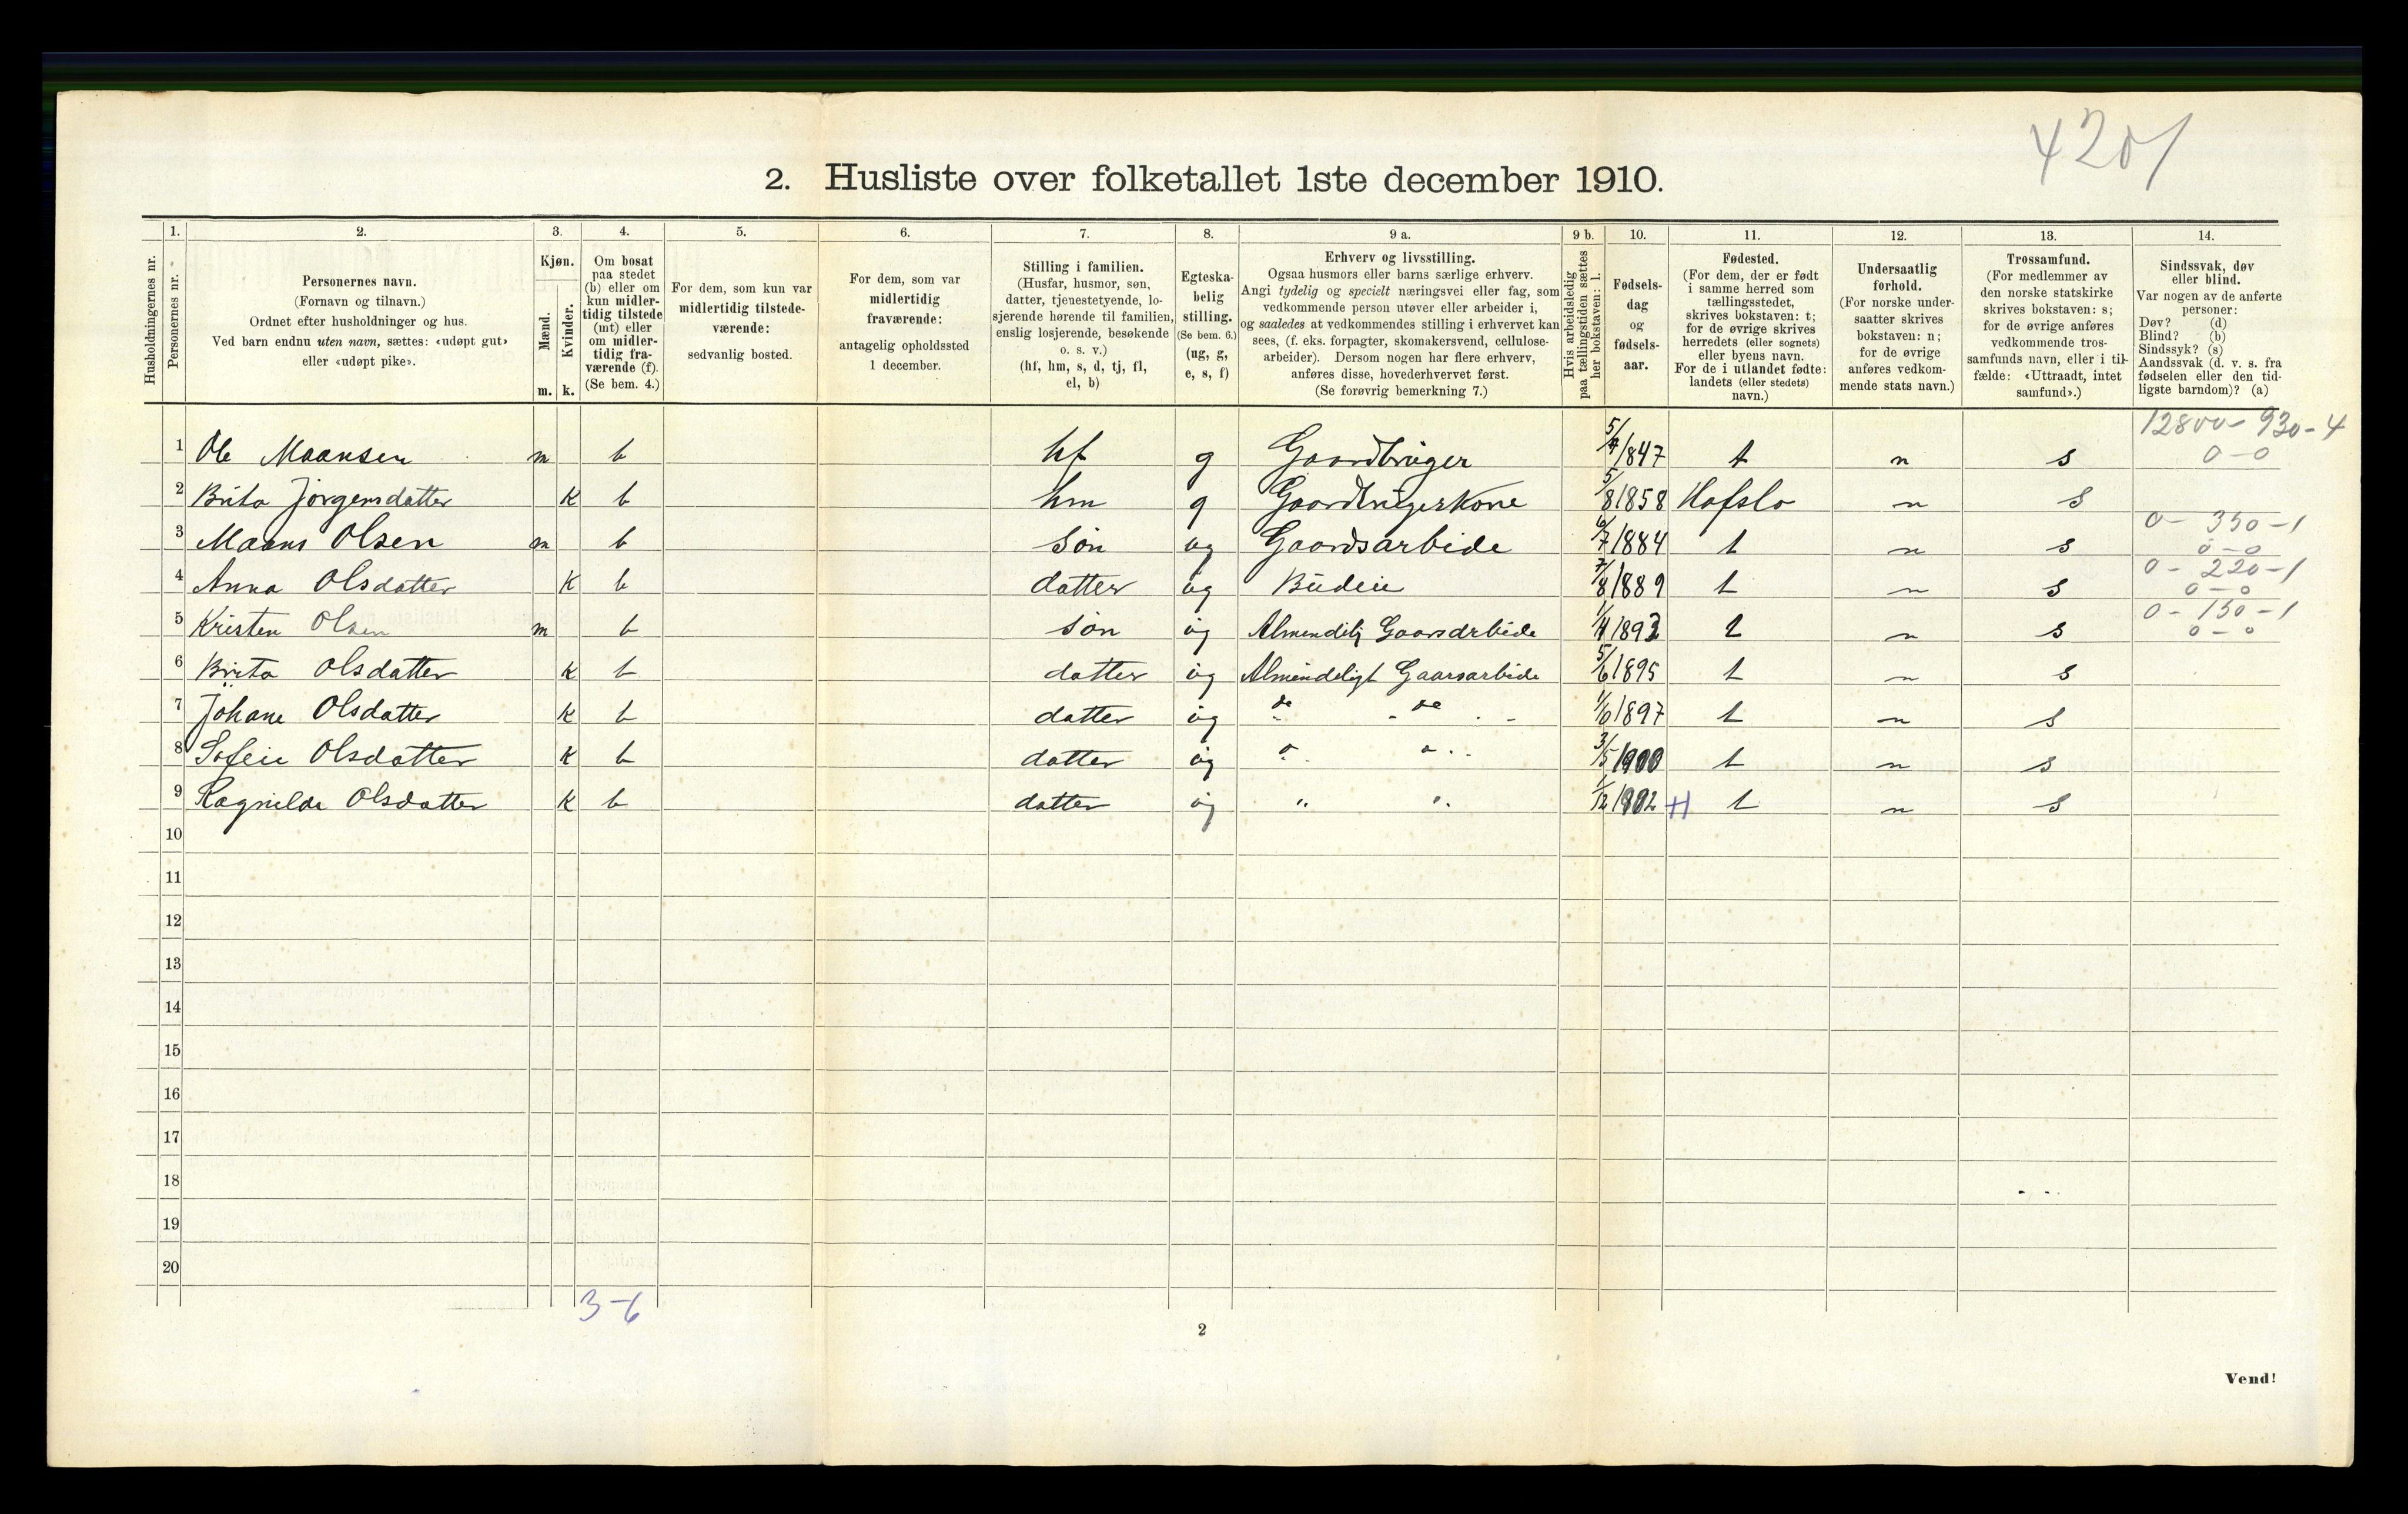 4201
2. Husliste over folketallet 1ste december 1910.
Husholdningernes nr.
1. Personernes nr.
2. Personernes navn.
(Fornavn og tilnavn.)
Ordnet efter husholdninger og hus.
Ved barn endnu uten navn, sættes: «udøpt gut»
eller «udøpt pike».
3. Kjøn.
Mænd. m.
Kvinder. k.
4. Om bosat
paa stedet
(b) eller om
kun midler-
tidig tilstede
(mt) eller
om midler-
tidig fra-
værende (f).
(Se bem. 4.)
5. For dem, som kun var
midlertidig tilstede-
værende:
sedvanlig bosted.
6. For dem, som var
midlertidig
fraværende:
antagelig opholdssted
1 december.
7. Stilling i familien.
(Husfar, husmor, søn,
datter, tjenestetyende, lo-
sjerende hørende til familien,
enslig losjerende, besøkende
o. s. v.)
(hf, hm, s, d, tj, fl,
el, b)
8. Egteska-
belig
stilling.
(Se bem. 6.)
(ug, g,
e, s, f)
9 a. Erhverv og livsstilling.
Ogsaa husmors eller barns særlige erhverv.
Angi tydelig og specielt næringsvei eller fag, som
vedkommende person utøver eller arbeider i,
og saaledes at vedkommendes stilling i erhvervet kan
sees, (f. eks. forpagter, skomakersvend, cellulose-
arbeider). Dersom nogen har flere erhverv,
anføres disse, hovederhvervet først.
(Se forøvrig bemerkning 7.)
9 b. Hvis arbeidsledig
paa tællingstiden sættes
her bokstaven: l.
10. Fødsels-
dag
og
fødsels-
aar.
11. Fødested.
(For dem, der er født
i samme herred som
tællingsstedet,
skrives bokstaven: t;
for de øvrige skrives
herredets (eller sognets)
eller byens navn.
For de i utlandet fødte:
landets (eller stedets)
navn.)
12. Undersaatlig
forhold.
(For norske under-
saatter skrives
bokstaven: n;
for de øvrige
anføres vedkom-
mende stats navn.)
13. Trossamfund.
(For medlemmer av
den norske statskirke
skrives bokstaven: s;
for de øvrige anføres
vedkommende tros-
samfunds navn, eller i til-
fælde: «Uttraadt, intet
samfund».)
14. Sindssvak, døv
eller blind.
Var nogen av de anførte
personer:
Døv? (d)
Blind? (b)
Sindssyk? (s)
Aandssvak (d. v. s. fra
fødselen eller den tid-
ligste barndom)? (a)
12800-930-4
1 Ole Maansen m b hf g Gaardbruger 1847 t n s 0-0
2 Brita Jørgensdatter k b hm g Gaardbrugerkone 5/8 1858 Hafslo n s
0-350-1
3 Maans Olsen m b søn ug Gaardsarbeide 6/7 1884 t n s 0-0
0-220-1
4 Anna Olsdatter k b datter ug Budeie 7/8 1889 t n s 0-0
0-150-1
5 Kristen Olsen m b søn ug Almendelig Gaarsdrbeide 1/4 1893 t n s 0-0
6 Brita Olsdatter k b datter ug Almendeligt Gaarsarbeide 5/6 1895 t n s
7 Johane Olsdatter k b datter ug do do 1/6 1897 t n s
8 Sofeie Olsdatter k b datter ug 3/5 1900 t n s
9 Ragnilda Olsdatter k b datter ug " " 1/12 1902 H t n s
10
11
12
13
14
15
16
17
18
19
20
3-6
2
Vend!